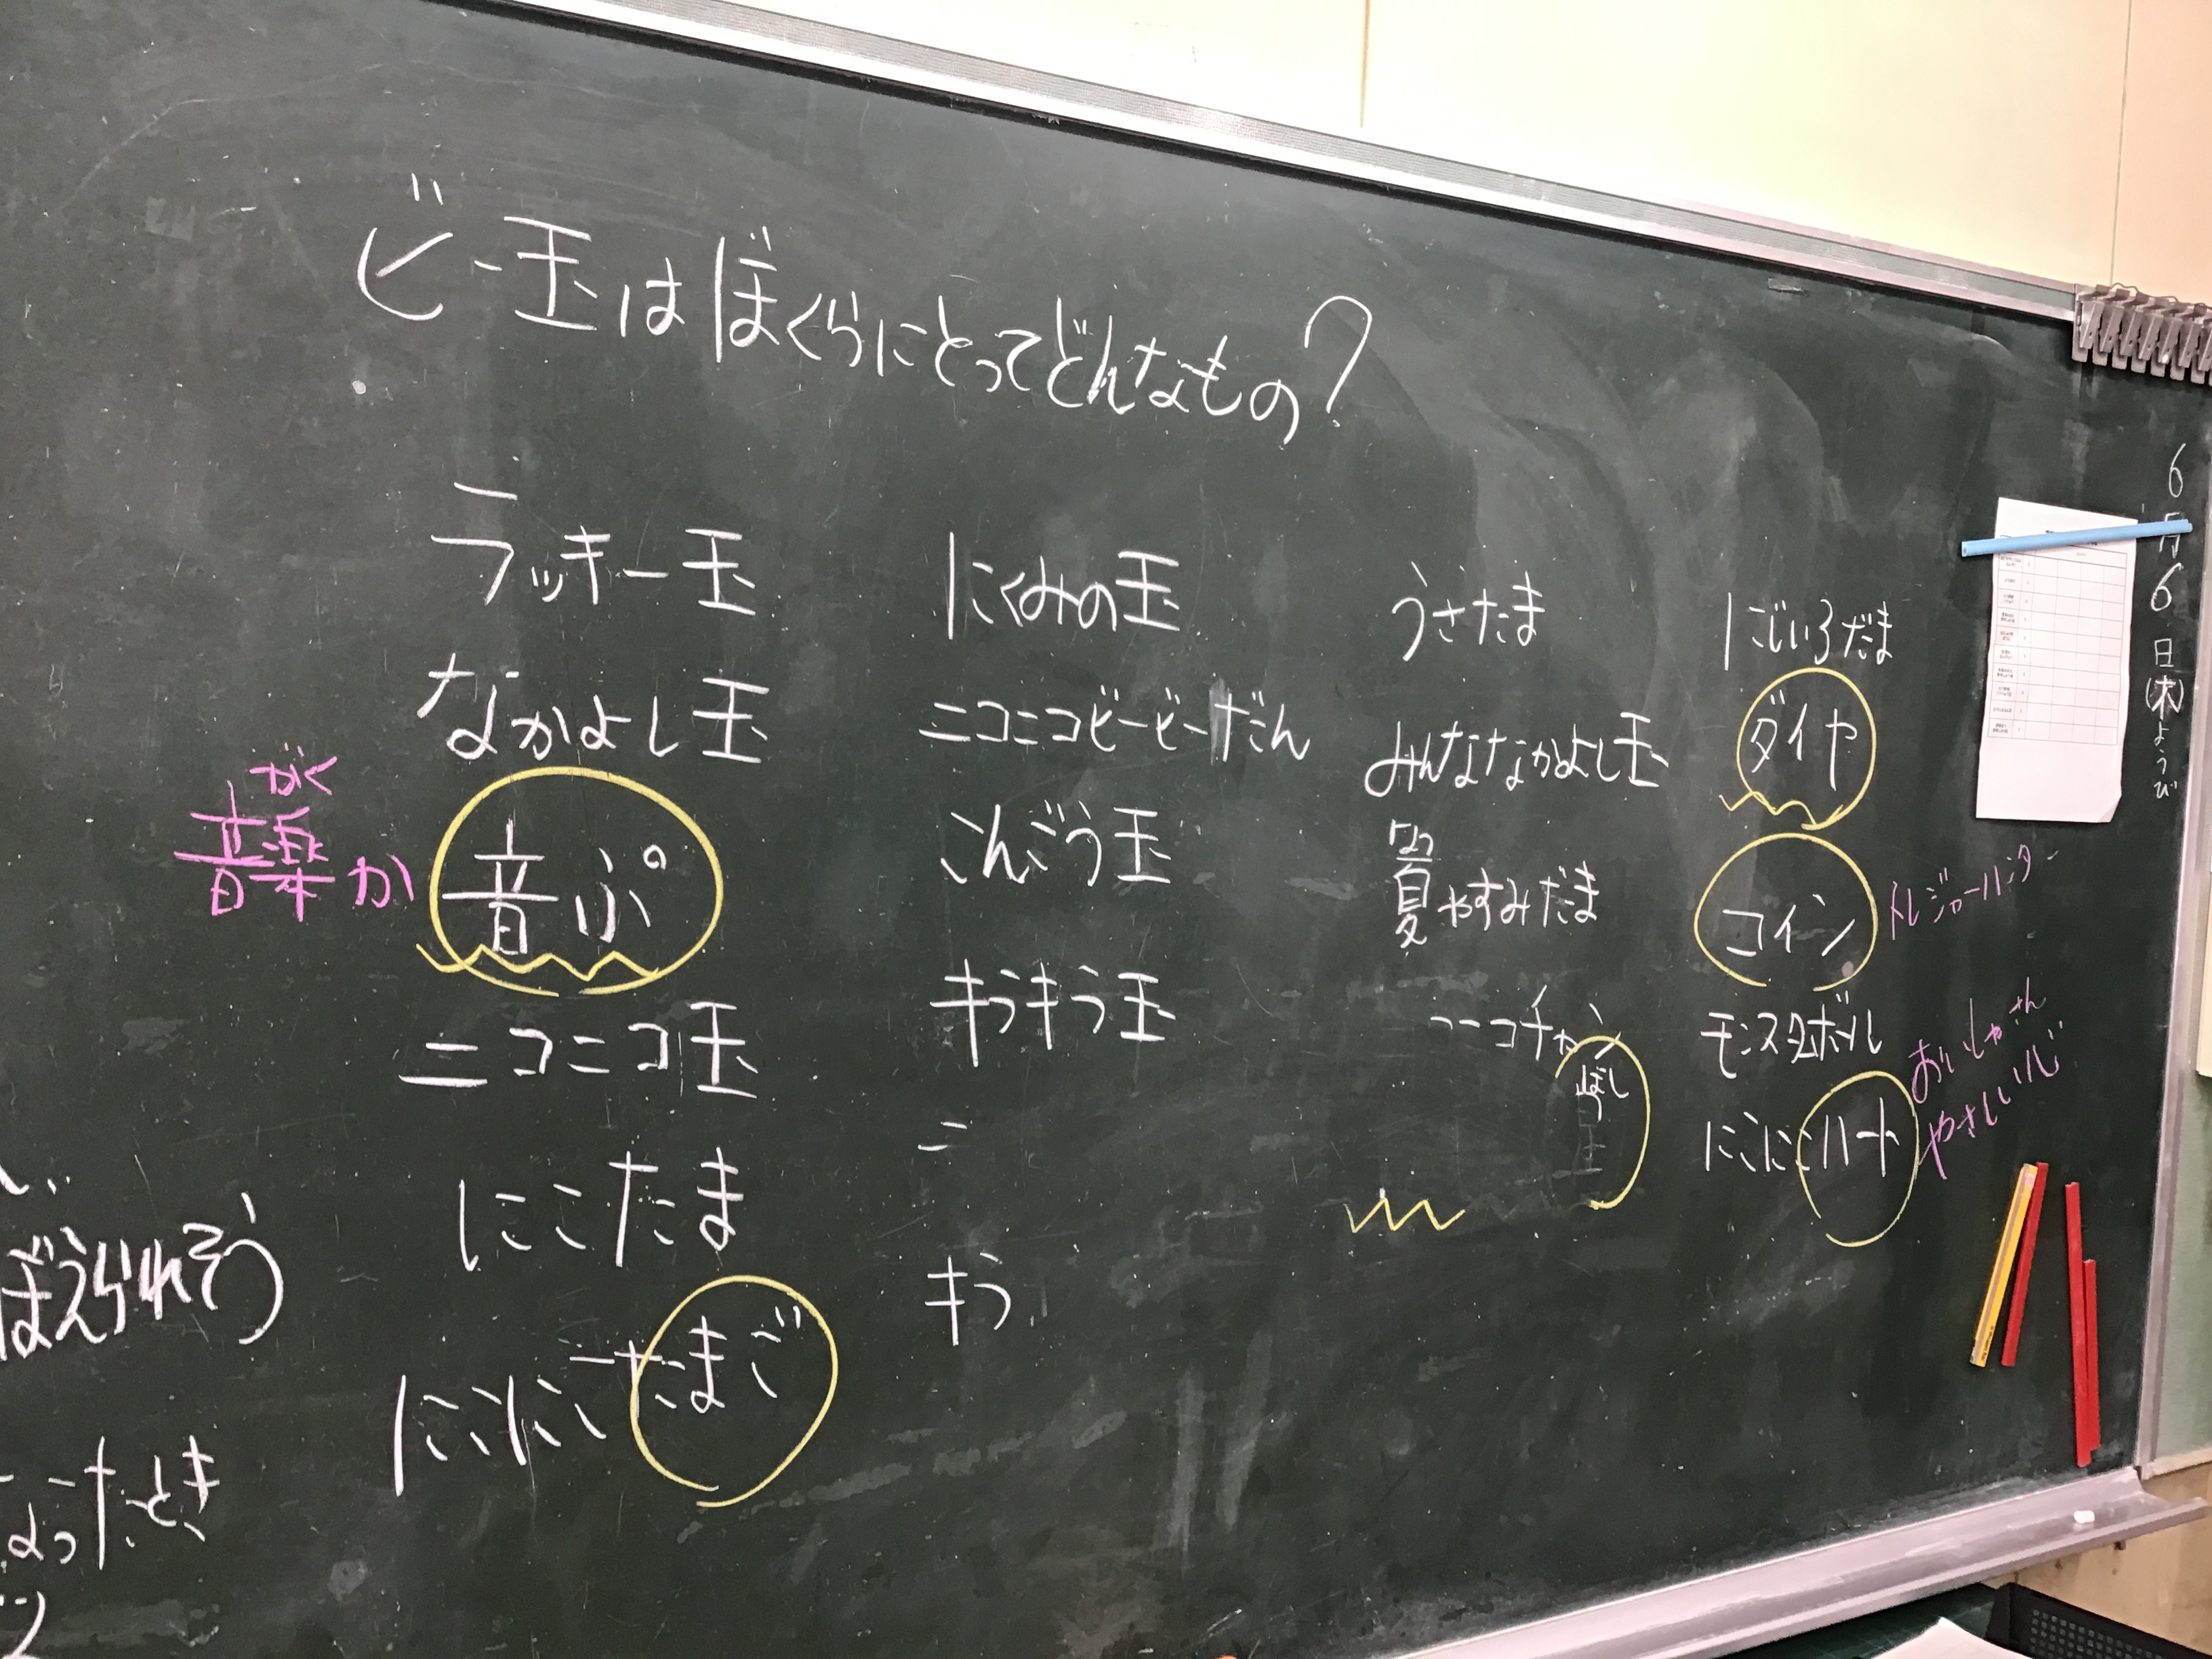 ビー玉はぼくらにとってどんなもの?
ラッキー玉
なかよし玉
音ぷ
がく
音楽か
ニコニコ玉
にこたま
にこにこたまご
にくみの玉
ニコニコビービーだん
こんごう玉
キラキラ玉
ニ
キラ
うさたま
みんななかよし玉
なつ
夏やすみだま
ニーコチャン
ぼし
にじいろだま
ダイヤ
コイン
トレジャーハンター
モンスターボール
にこにこハート
おいしゃさん
やさしい心
6月6日(木)ようび
ぼえられそう
なったとき